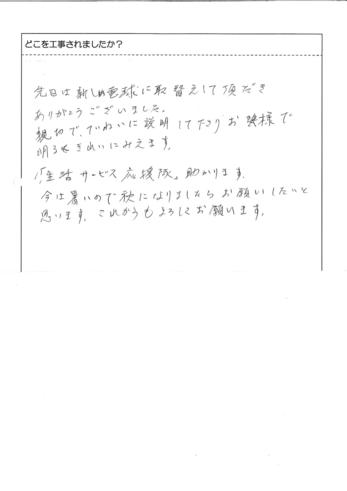 どこを工事されましたか？
先日は新しい電球に取替えして頂だき
ありがとうございました。
親切で、ていねいに説明して下さりお陰様で
明るくきれいにみえます。
「生活サービス応援隊」助かります。
今は暑いので秋になりましたらお願いしたいと
思います。これからもよろしくお願います。